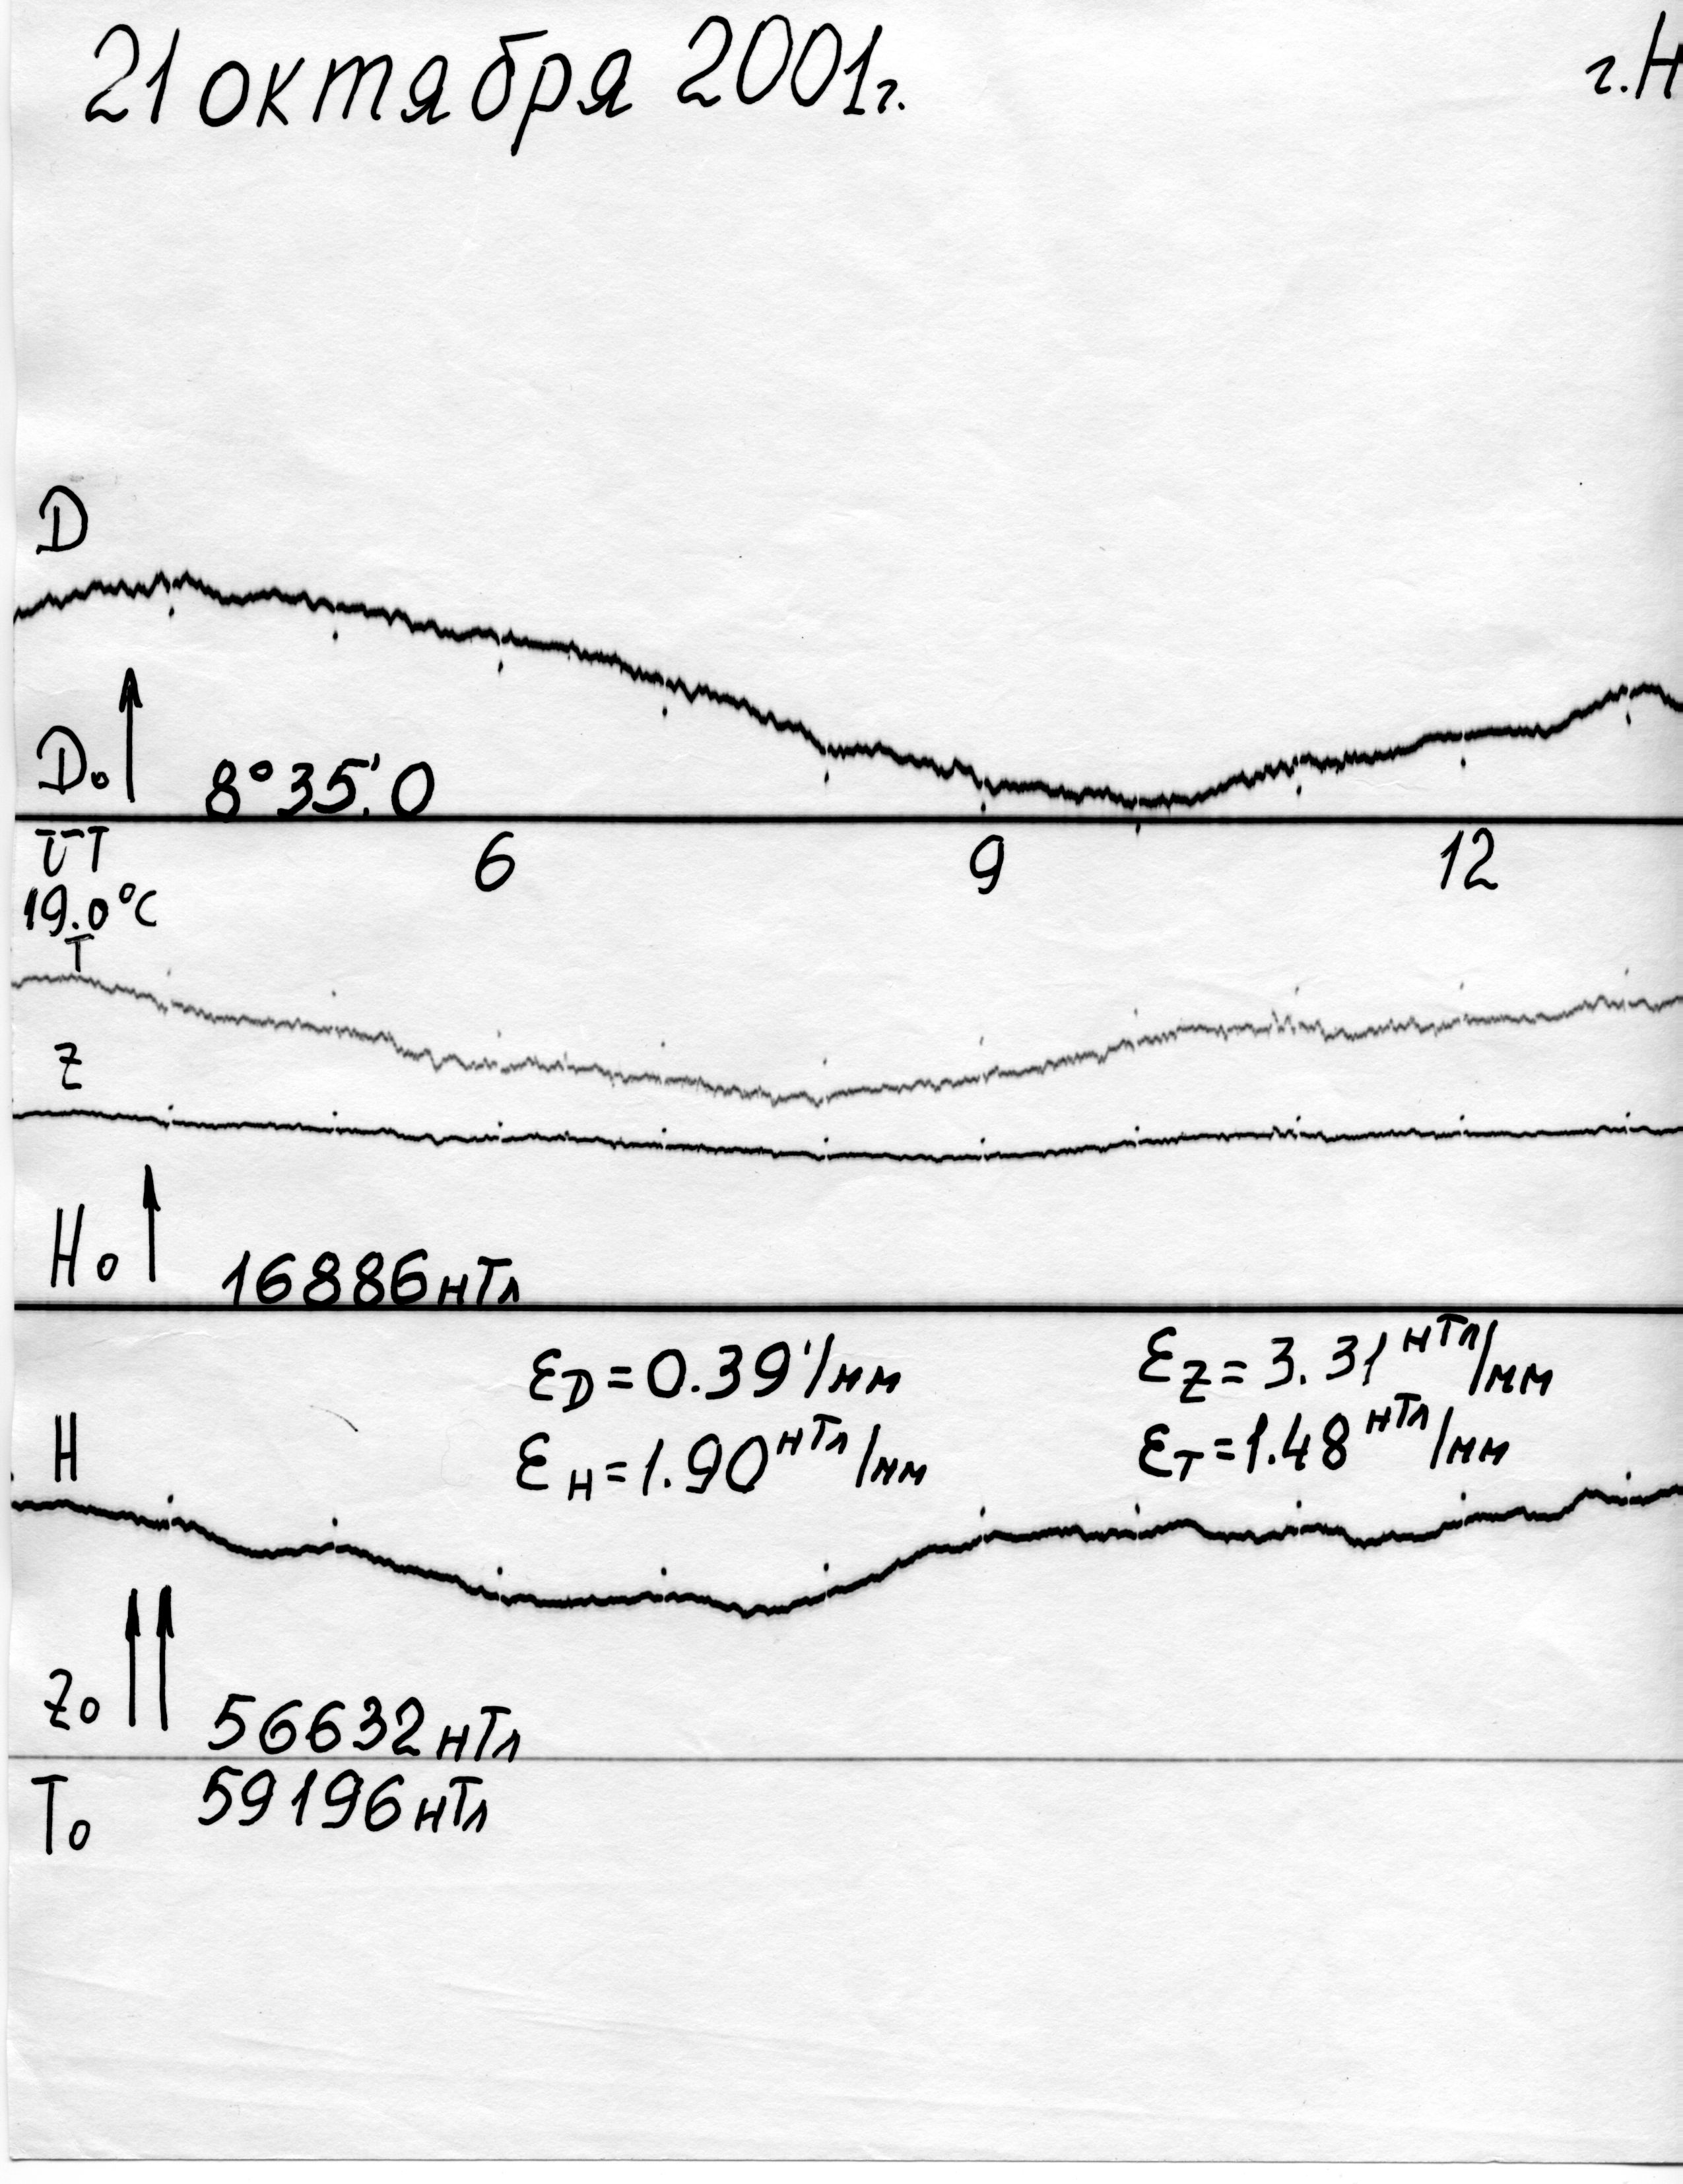 21 октября 2001г. г.Н
D
D₀ 8°35'.0
UT 6 9 12
19.0°C
T
Z
H₀ 16886нТл
εD=0.39'/мм εZ=3.31нТл/мм
H εH=1.90нТл/мм εT=1.48нТл/мм
Z₀ 56632нТл
T₀ 59196нТл